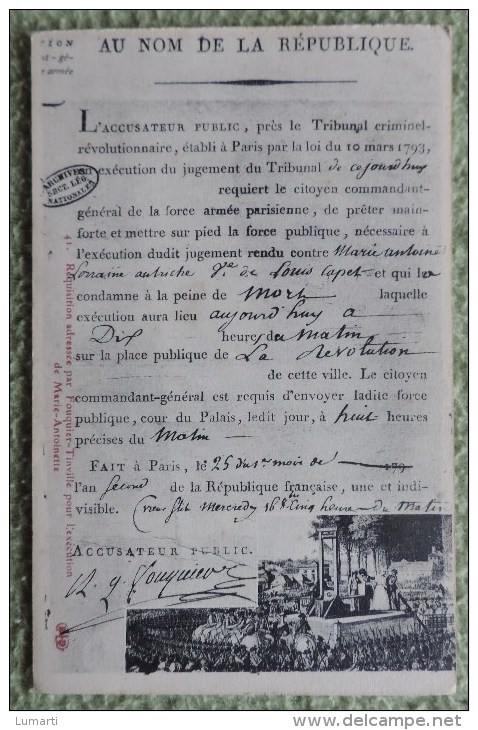 TION
AU NOM DE LA RÉPUBLIQUE.
armée
L'ACCUSATEUR PUBLIC, près le Tribunal criminel-
révolutionnaire, établi à Paris par la loi du 10 mars 1793,
en exécution du jugement du Tribunal de cejourdhuy
requiert le citoyen commandant-
général de la force armée parisienne, de prêter main-
forte et mettre sur pied la force publique, nécessaire à
l'exécution dudit jugement rendu contre Marie antoine
Lorraine autriche Ve de Louis Capet et qui la
condamne à la peine de Mort laquelle
exécution aura lieu aujourd'huy à
Dix heures du Matin
sur la place publique de La Révolution
de cette ville. Le citoyen
commandant-général est requis d'envoyer ladite force
publique, cour du Palais, ledit jour, à huit heures
précises du Matin
FAIT à Paris, le 25 du 1er mois de 179
l'an Second de la République française, une et indi-
visible. Mercredy 16 8bre Cinq heures du Matin
ACCUSATEUR PUBLIC.
A. Q. Fouquier
ARCHIVES
SECT. LÉG.
NATIONALES
41. Réquisition adressée par Fouquier-Tinville pour l'exécution
de Marie-Antoinette
Lumarti
delcampe.net